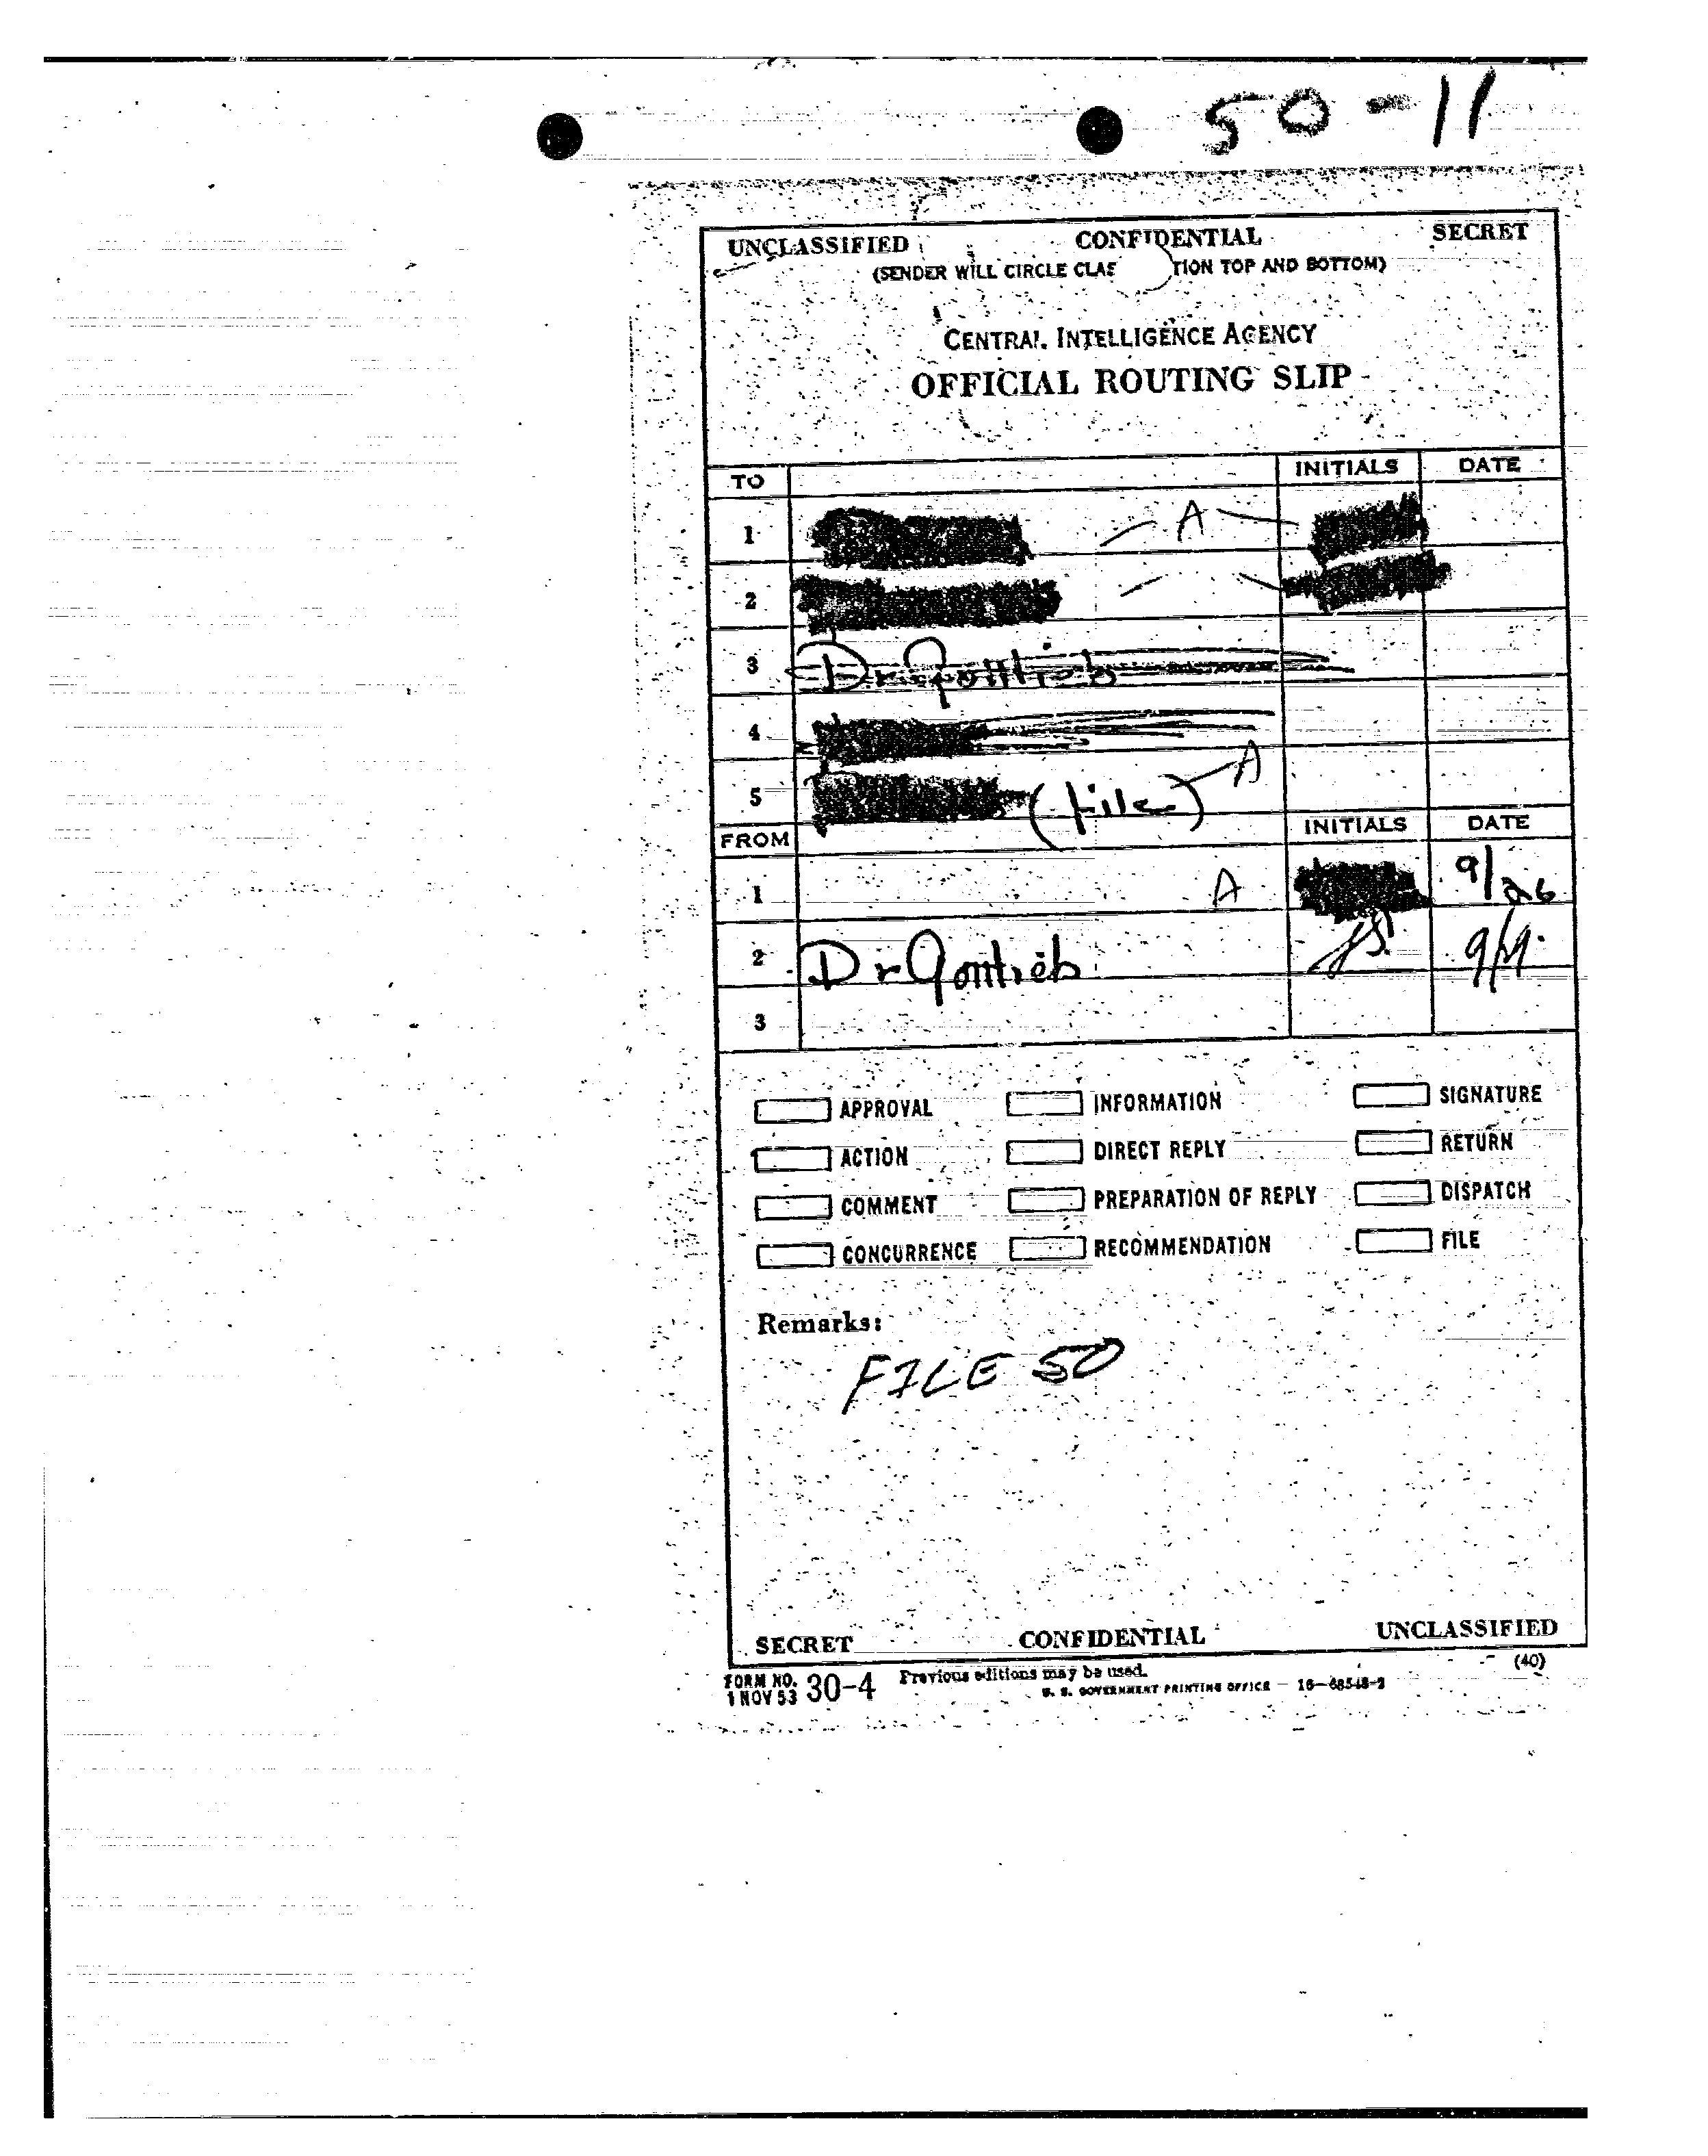 50-11
UNCLASSIFIED CONFIDENTIAL SECRET
(SENDER WILL CIRCLE CLAS TION TOP AND BOTTOM)
CENTRAL INTELLIGENCE AGENCY
OFFICIAL ROUTING SLIP
TO INITIALS DATE
1 A
2
3 Dr Gottlieb
4
5 (file) A
FROM INITIALS DATE
1 A 9/26
2 Dr Gottlieb
3
APPROVAL INFORMATION SIGNATURE
ACTION DIRECT REPLY RETURN
COMMENT PREPARATION OF REPLY DISPATCH
CONCURRENCE RECOMMENDATION FILE
Remarks:
FILE 50
SECRET CONFIDENTIAL UNCLASSIFIED
FORM NO. 30-4 Previous editions may be used. (40)
1 NOV 53 U. S. GOVERNMENT PRINTING OFFICE 16-68548-2